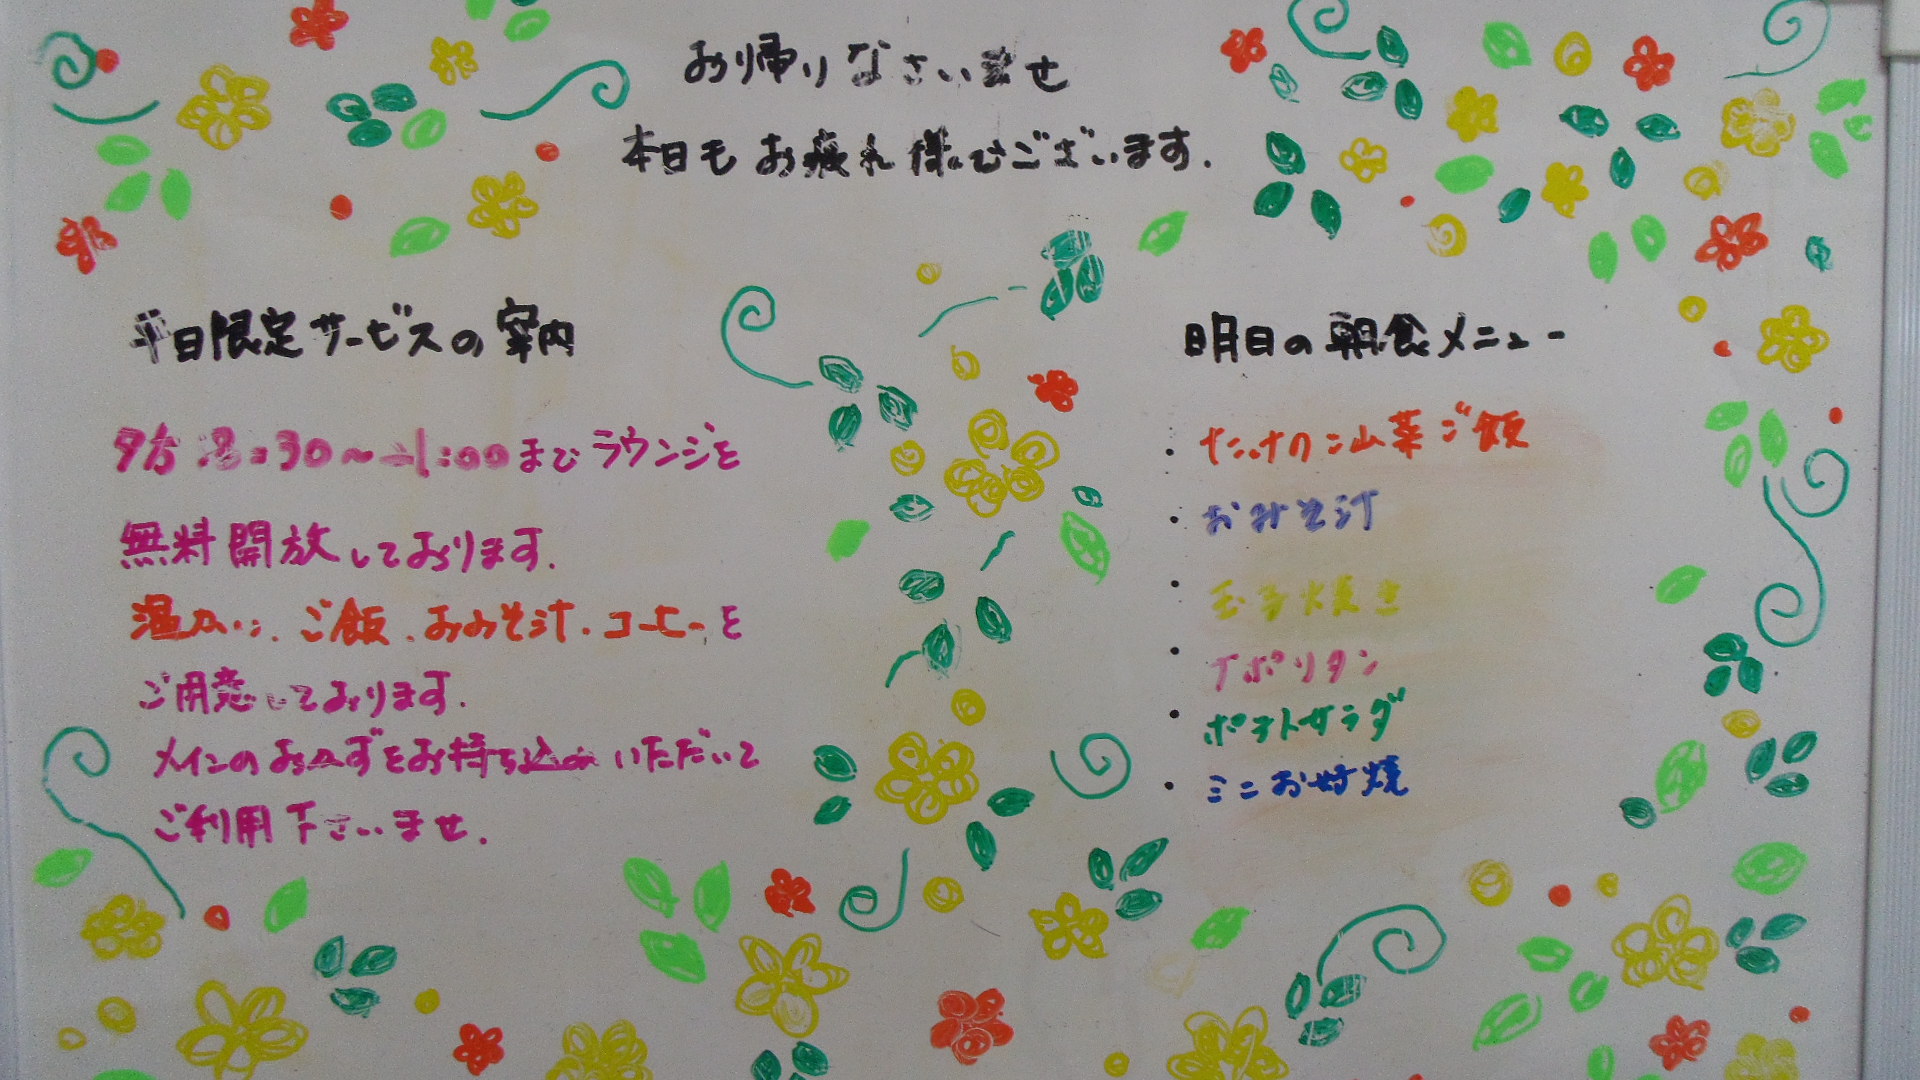 お帰りなさいませ
本日もお疲れ様でございます.
平日限定サービスの案内
夕方:8:30～1:00までラウンジを
無料開放しております.
温かい、ご飯、おみそ汁、コーヒーを
ご用意しております.
メインのおかずをお持ち込みいただいて
ご利用下さいませ.
明日の朝食メニュー
・たけのこ山菜ご飯
・おみそ汁
・玉子焼き
・ナポリタン
・ポテトサラダ
・ミニお好焼